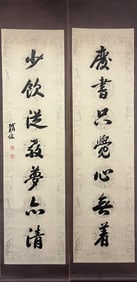 廢書只覺心無著
少飲從教夢亦清